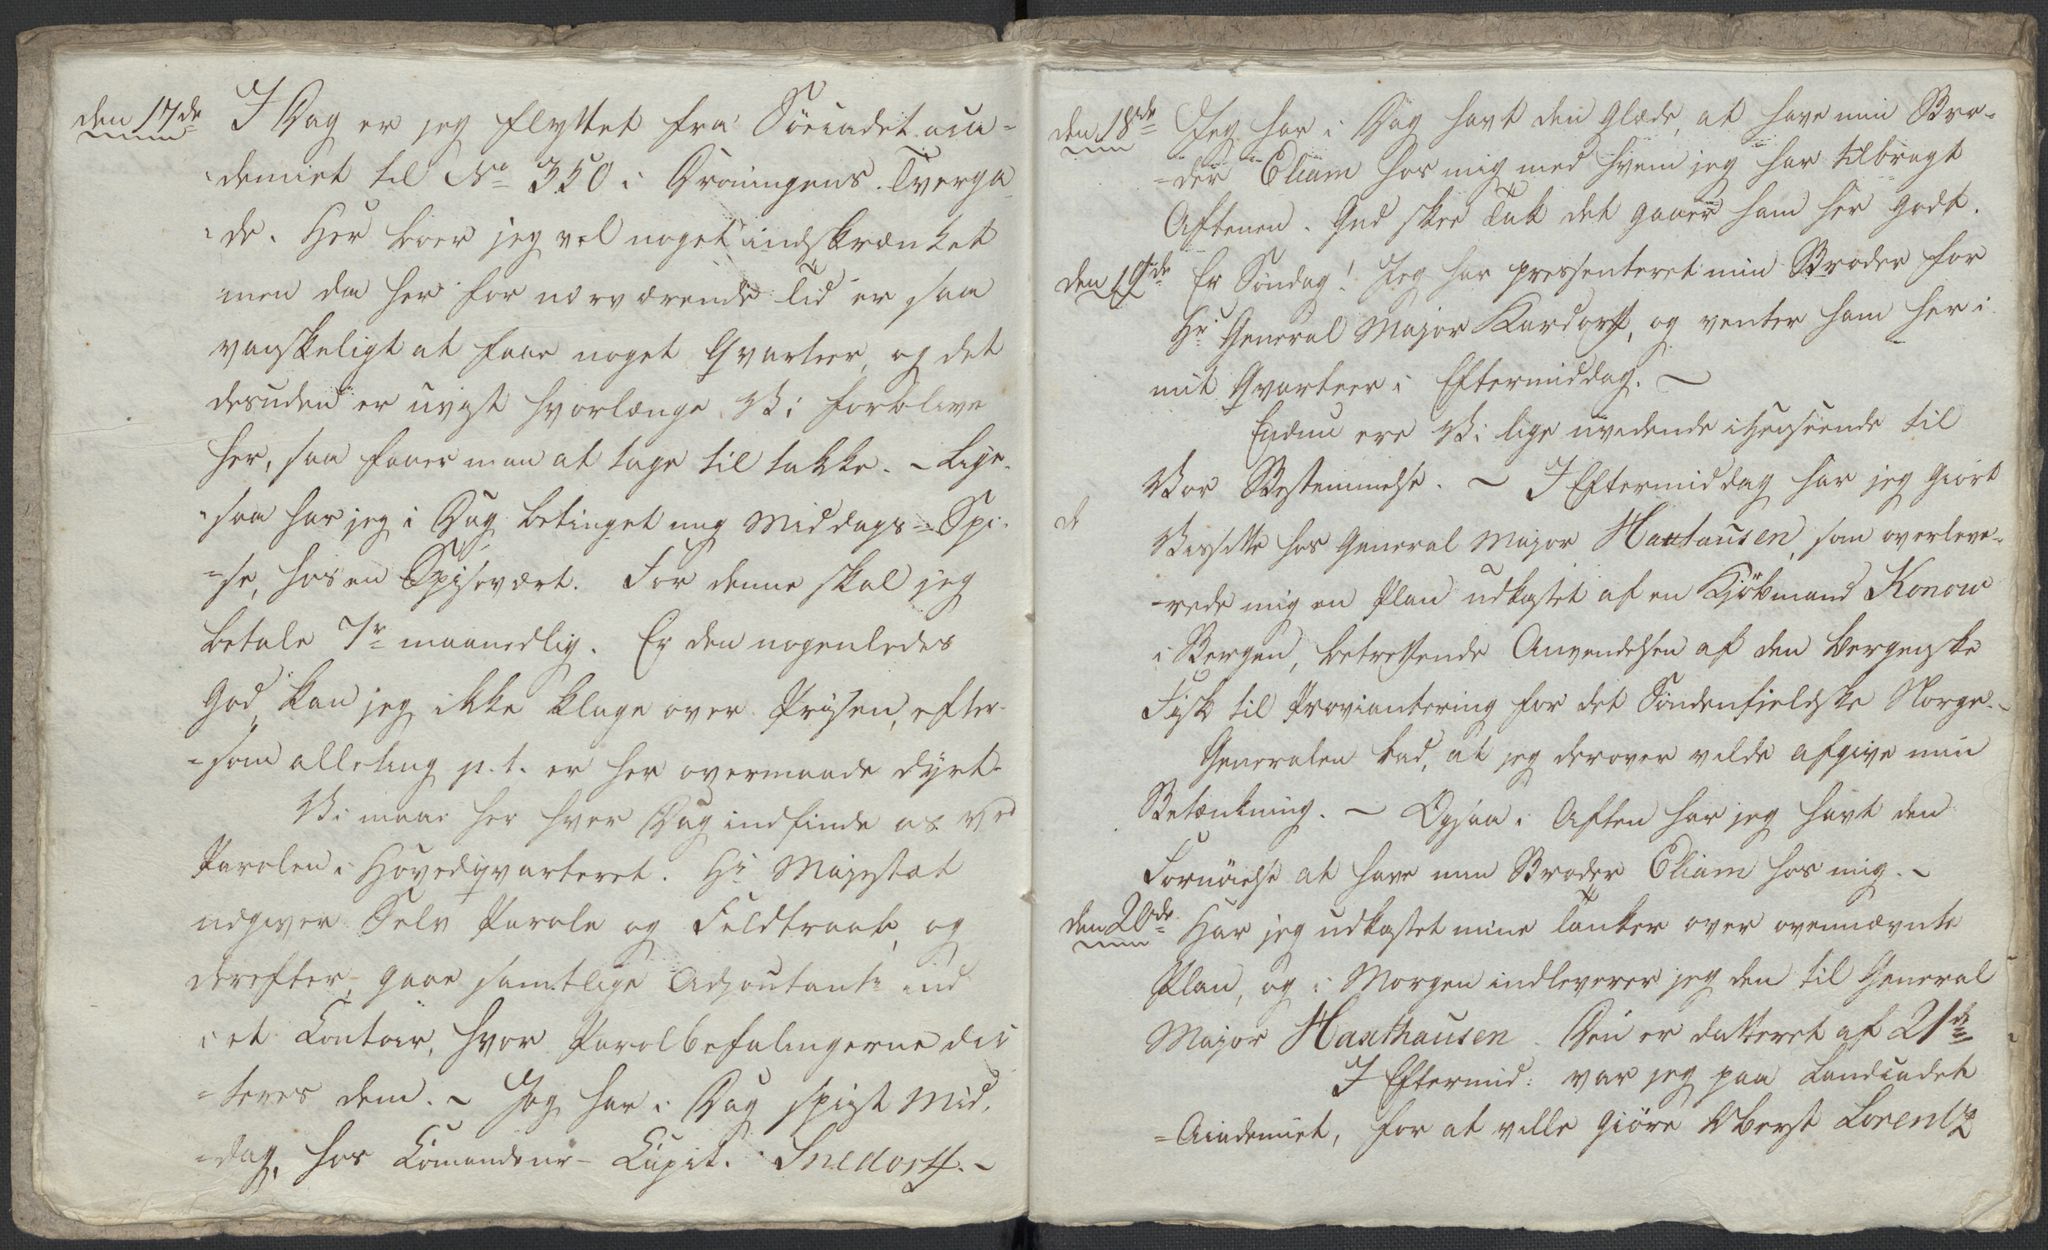 den 17de I Dag er jeg flyttet fra Søecadet aca-
demiet til No 350 i Dronningens Tverga
de. Her boer jeg vel noget indskrænket
men da her for nærværende Tid er saa
vanskeligt at faae noget Qvarteer, og det
desuden er uvist hvorlænge Vi forblive
her, saa faaer man at tage til takke. - Lige-
saa har jeg i Dag betinget mig Middags-Spi-
-se, hos en Spisevært. For denne skal jeg
betale 7r maanedlig. Er den nogenledes
God, kan jeg ikke klage over Prisen, efter-
-som alleting p.t. er her overmaade dyrt.
Vi maae her hver Dag indfinde os ved
Parolen i Hovedqvarteret. Hs Majestæt
udgiver Selv Parole og Feldtraab, og
derefter gaae samtlige Adjoutanter ind
i et Contoir, hvor Parolbefalingerne dic
-teres dem. - Jeg har i Dag spist Mid,
-dag, hos Comandeur-Capit. Snedorff. -
den 18de Jeg har i Dag havt den Glæde, at have min Bro-
-der Eliam hos mig med hvem jeg har tilbragt
Aftenen. Gud skee Tak det gaaer ham her Godt.
den 19de Er Søndag! Jeg har pressenteret min Broder for
Hr General Major Kardorff, og venter ham her i
mit Qvarteer i Eftermiddag. -
Endnu ere Vi lige uvidende i Henseende til
Vor Bestemmelse. - I Eftermiddag har jeg Giort
Vissitte hos General Major Haxtausen, som overleve-
-rede mig en Plan udkastet af en Kjøbmand Konow
i Bergen, betreffende Anvendelsen af den bergenske
Fisk til Proviantering for det Søndenfieldske Norge. -
Generalen bad, at jeg derover vilde afgive min
Betænkning. - Ogsaa i Aften har jeg havt den
Fornøielse at have min Broder Eliam hos mig. -
den 20de Har jeg udkastet mine Tanker over ovennævnte
Plan, og i Morgen indleverer jeg den til General
Major Haxthausen. Den er datteret af 21de
I Eftermid: var jeg paa Landcadet
-Academiet, for at ville Giøre Oberst Lorentz